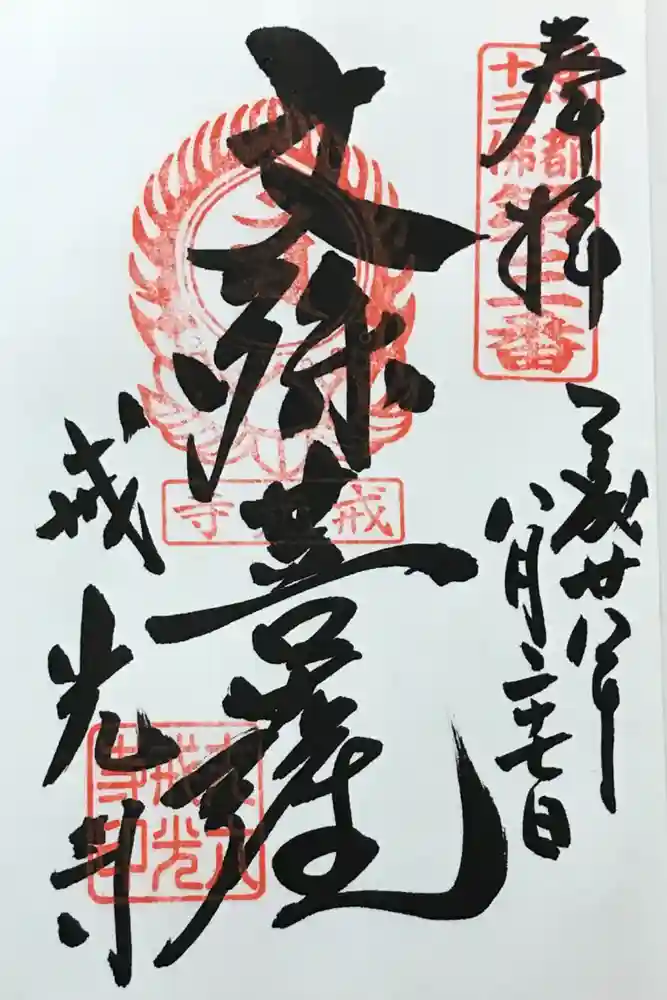 奉拝
京都
十三佛
第三番
平成廿八年
八月二十七日
文殊菩薩
戒光寺
戒光寺
丈六
戒光
寺印